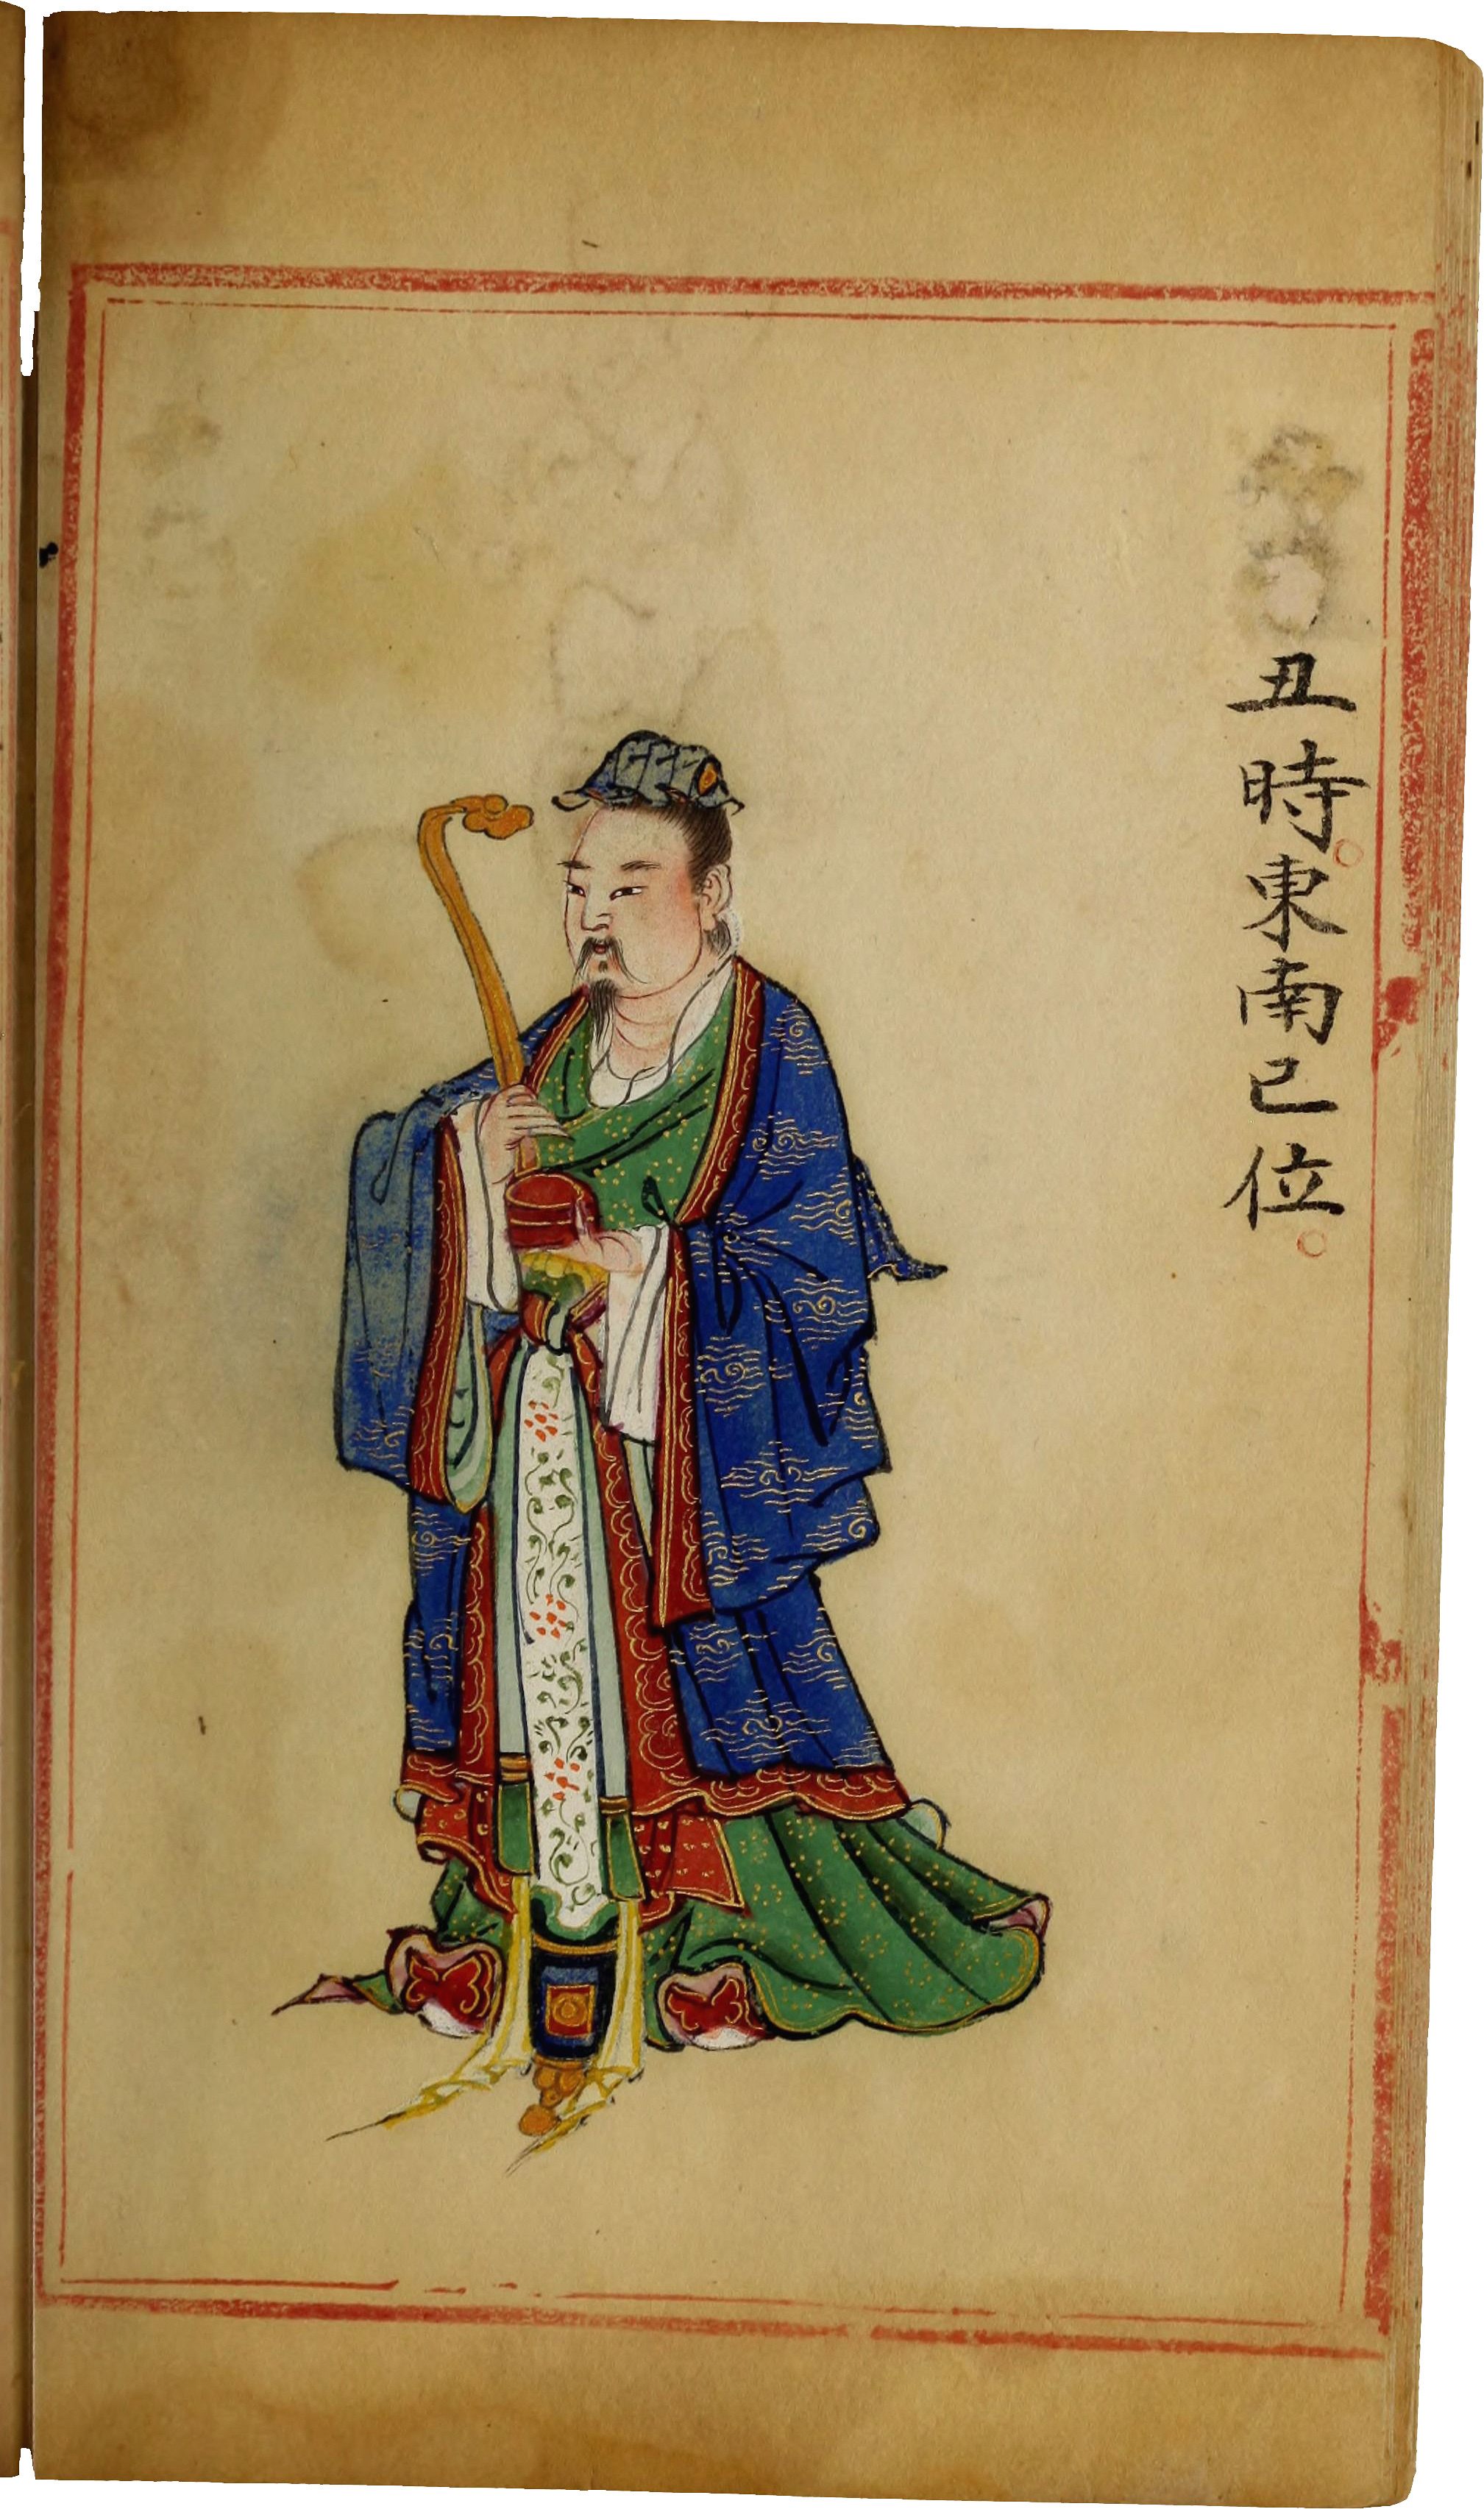 丑時。東南巳位。